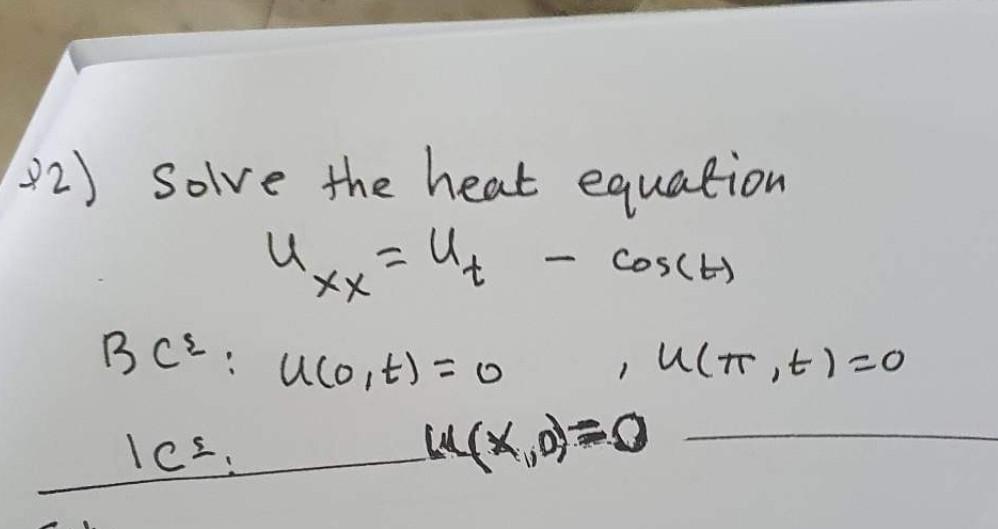 Q2) Solve the heat equation
u_xx = u_t - cos(t)
BCs: u(0,t)=0 , u(π,t)=0
ICs: u(x,0)=0